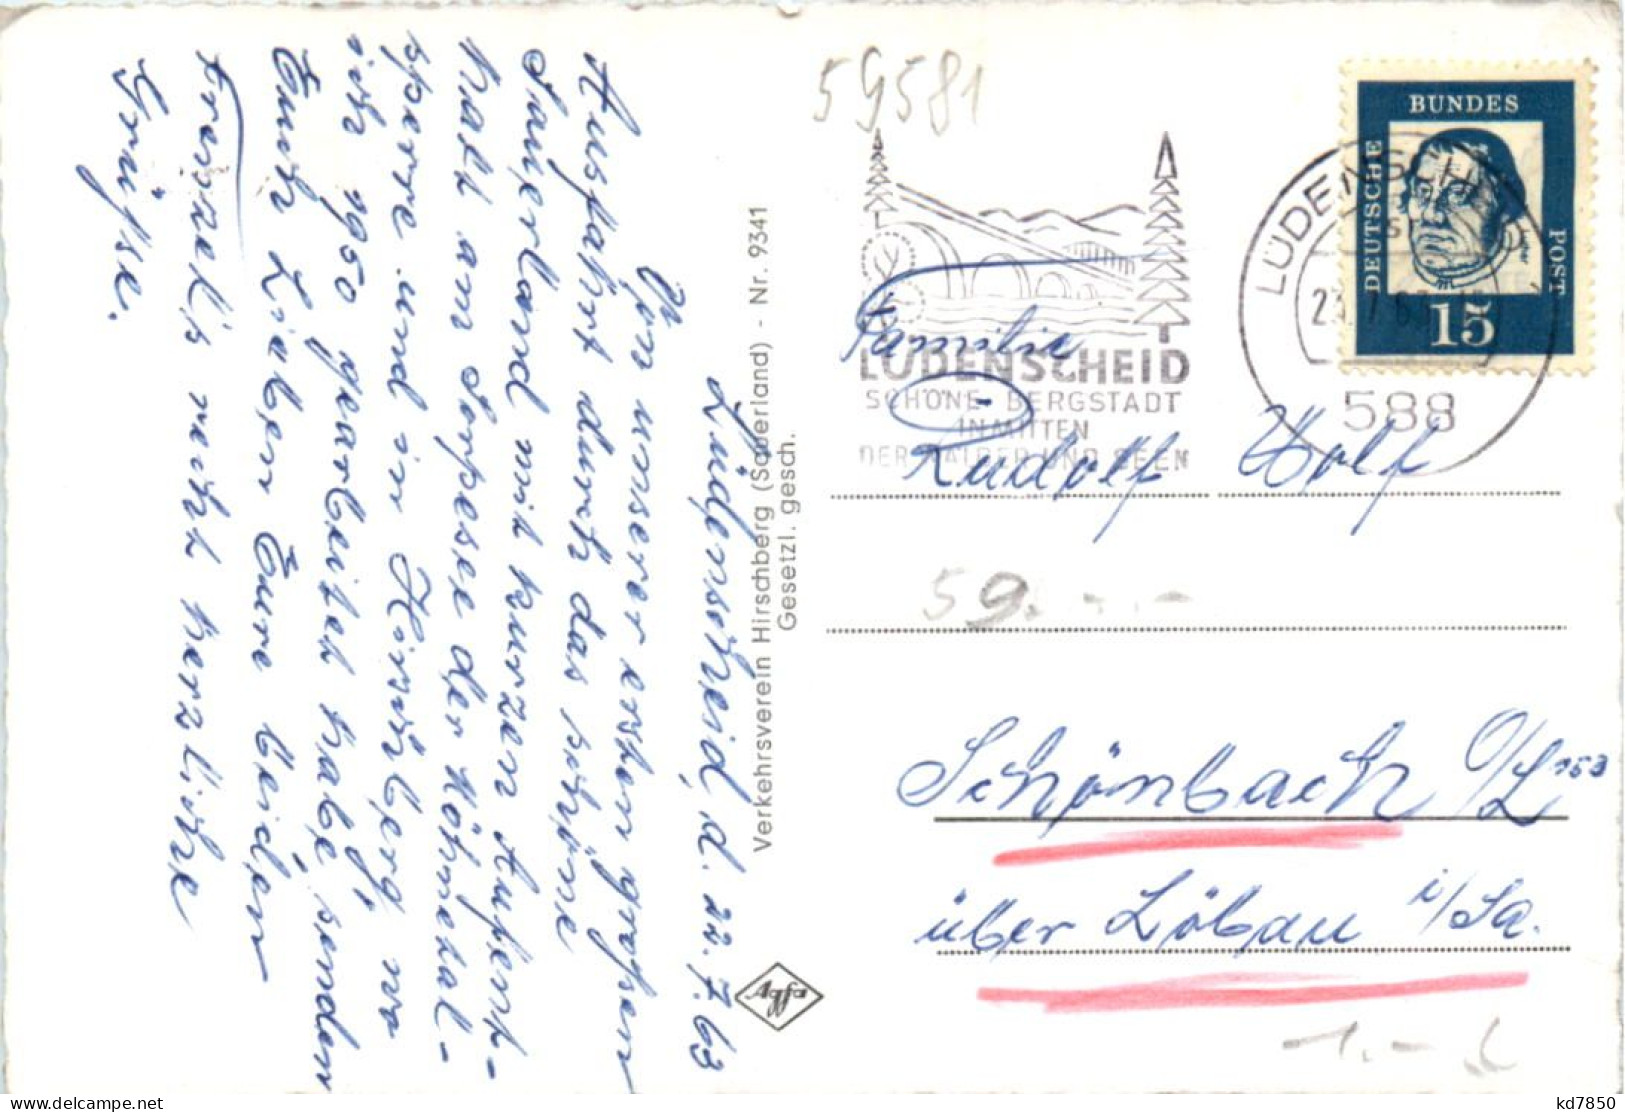 Lüdenscheid, d. 22.7.63
Von unserer ersten großen
Ausfahrt durch das schöne
Sauerland mit kurzen Aufent-
halt am Sorpesee der Höhnetal-
sperre und in Hirschberg, wo
ich 1950 gearbeitet habe, senden
Euch Lieben Eure beiden
Frenzel's recht herzliche
Grüße.
Verkehrsverein Hirschberg (Sauerland) - Nr. 9341
Gesetzl. gesch.
Agfa
59581
DEUTSCHE BUNDES POST
15
LÜDENSCHEID
23.7.63
588
LÜDENSCHEID
SCHÖNE BERGSTADT
INMITTEN
DER WÄLDER UND SEEN
Familie
Rudolf Wolf
59.-
Schönbach O/L 153
über Löbau i/Sa.
1.-
kd7850